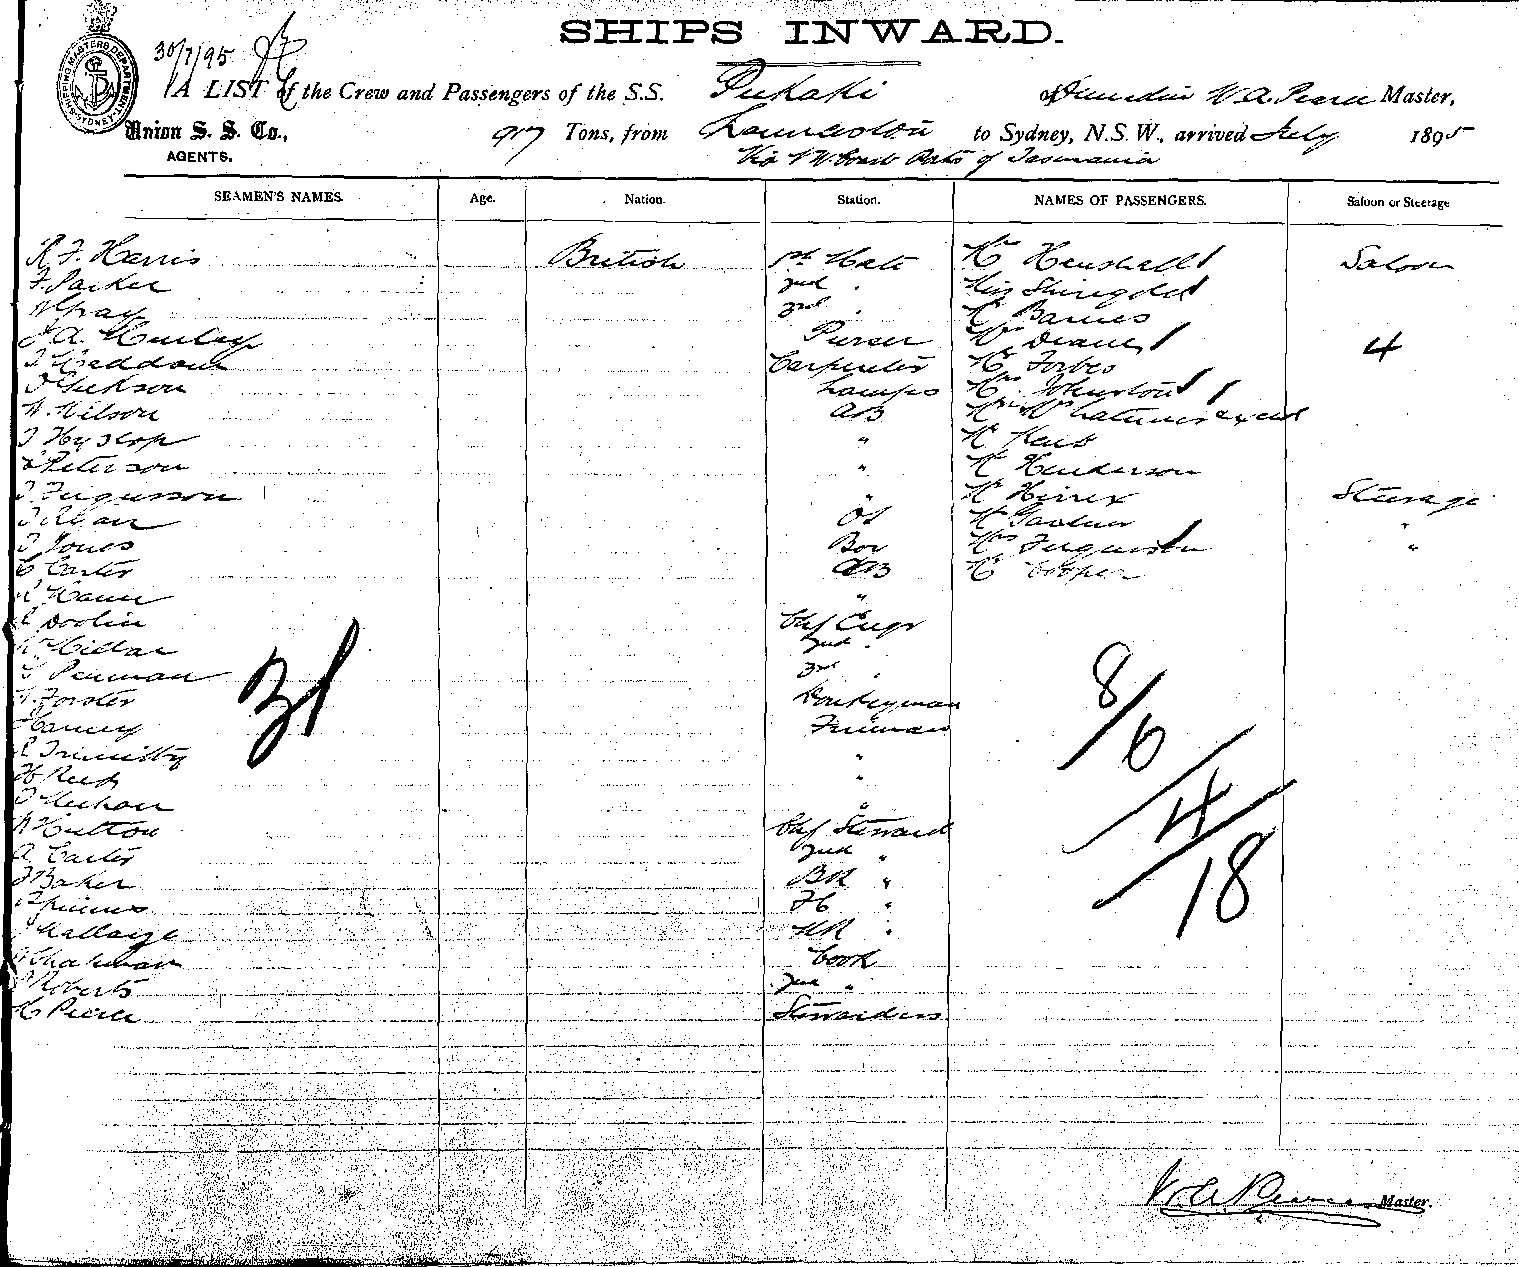 SHIPS INWARD.
SHIPPING MASTERS DEPARTMENT SYDNEY
30/7/95
A LIST of the Crew and Passengers of the S.S. Pukaki of Dunedin W. A. Pearce Master,
Union S. S. Co.,
AGENTS.
917 Tons, from Launceston to Sydney, N.S.W., arrived July 1895
Via N W Coast Ports of Tasmania
SEAMEN'S NAMES. Age. Nation. Station. NAMES OF PASSENGERS. Saloon or Steerage
R F. Harris British 1st Mate Mr Henshall Saloon
F. Parker 2nd " Miss
W Gray 3rd " Mr Barnes
J A. Purser Mrs Deane 4
Carpenter Mr Forbes
Lamps Mrs Johnston
W. Wilson AB
J Hyslop " Mr Kent
Peterson " Mr Henderson
J. Fergusson " Mr Hirrex Steerage
J Ryan OS Mr Gardner "
J Jones Boy Mrs Ferguson "
C Carter AB Mr Cooper
"
Doolin Chf Engr
Millar 2nd "
Penman 3rd "
Forster Donkeyman
Harvey Fireman
"
H Reed "
J Meehan "
W Hutton Chf Steward
A. Carter 2nd "
J Baker BR "
FC "
"
Chapman Cook
J Roberts 2nd "
Pearce Stewardess
31
8/6
4
18
W A Pearce Master.